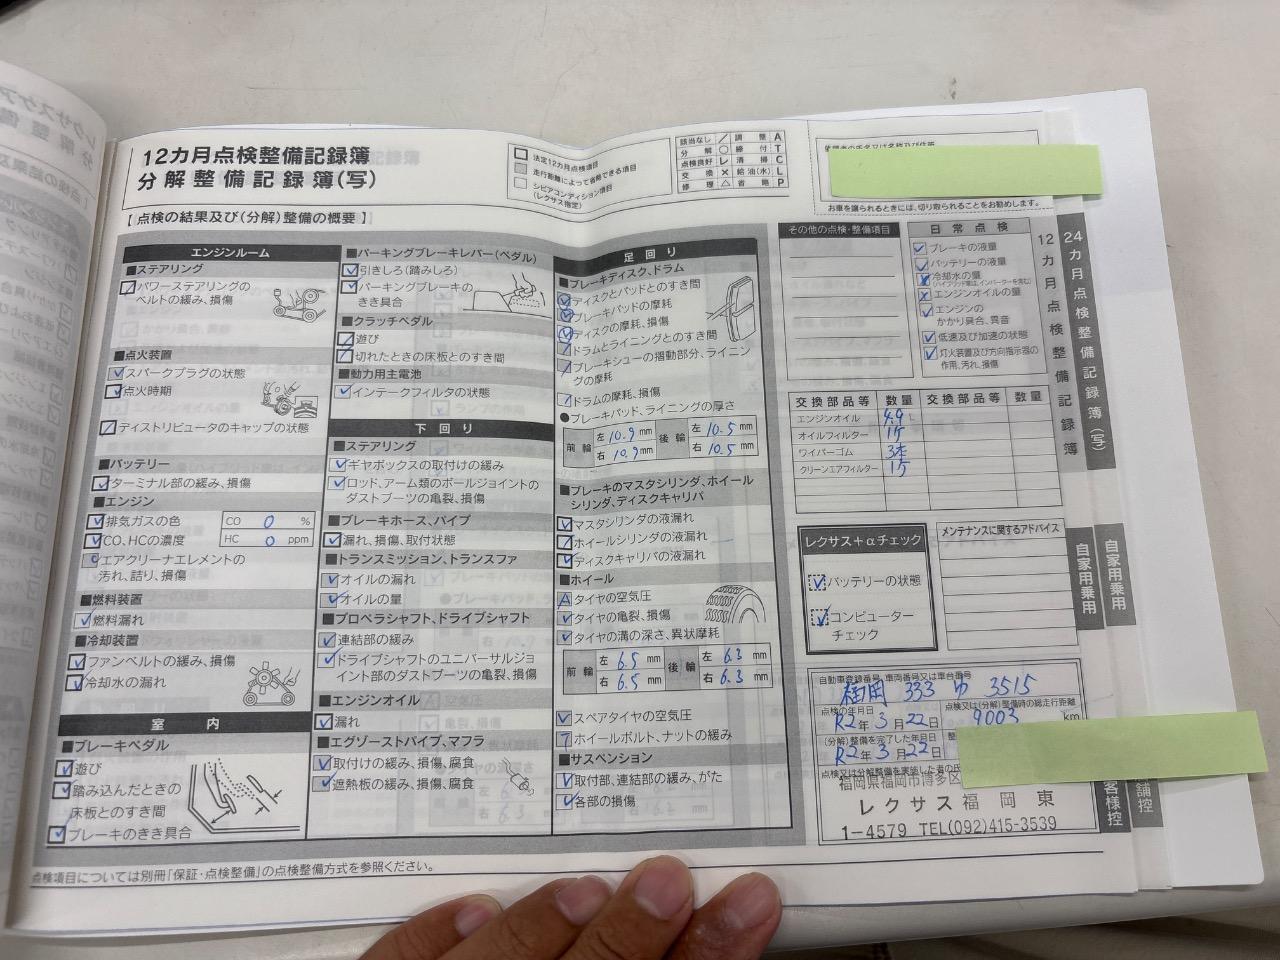 12カ月点検整備記録簿
分解整備記録簿(写)
法定12カ月点検項目
走行距離によって省略できる項目
シビアコンディション項目
(レクサス指定)
該当なし ／ 調整 A
分解 ○ 締付 T
点検良好 レ 清掃 C
交換 × 給油(水) L
修理 △ 省略 P
お車を譲られるときには、切り取られることをお勧めします。
【点検の結果及び(分解)整備の概要】
エンジンルーム
■ステアリング
パワーステアリングの
ベルトの緩み、損傷
■点火装置
スパークプラグの状態
点火時期
ディストリビュータのキャップの状態
■バッテリー
ターミナル部の緩み、損傷
■エンジン
排気ガスの色
CO、HCの濃度
CO 0 %
HC 0 ppm
エアクリーナエレメントの
汚れ、詰り、損傷
■燃料装置
燃料漏れ
■冷却装置
ファンベルトの緩み、損傷
冷却水の漏れ
室内
■ブレーキペダル
遊び
踏み込んだときの
床板とのすき間
ブレーキのきき具合
■パーキングブレーキレバー(ペダル)
引きしろ(踏みしろ)
パーキングブレーキの
きき具合
■クラッチペダル
遊び
切れたときの床板とのすき間
■動力用主電池
インテークフィルタの状態
下回り
■ステアリング
ギヤボックスの取付けの緩み
ロッド、アーム類のボールジョイントの
ダストブーツの亀裂、損傷
■ブレーキホース、パイプ
漏れ、損傷、取付状態
■トランスミッション、トランスファ
オイルの漏れ
オイルの量
■プロペラシャフト、ドライブシャフト
連結部の緩み
ドライブシャフトのユニバーサルジョ
イント部のダストブーツの亀裂、損傷
■エンジンオイル
漏れ
■エグゾーストパイプ、マフラ
取付けの緩み、損傷、腐食
遮熱板の緩み、損傷、腐食
足回り
■ブレーキディスク、ドラム
ディスクとパッドとのすき間
ブレーキパッドの摩耗
ディスクの摩耗、損傷
ドラムとライニングとのすき間
ブレーキシューの摺動部分、ライニン
グの摩耗
ドラムの摩耗、損傷
●ブレーキパッド、ライニングの厚さ
前輪 左 10.9 mm 後輪 左 10.5 mm
右 10.9 mm 右 10.5 mm
■ブレーキのマスタシリンダ、ホイール
シリンダ、ディスクキャリパ
マスタシリンダの液漏れ
ホイールシリンダの液漏れ
ディスクキャリパの液漏れ
■ホイール
A タイヤの空気圧
タイヤの亀裂、損傷
タイヤの溝の深さ、異状摩耗
前輪 左 6.5 mm 後輪 左 6.3 mm
右 6.5 mm 右 6.3 mm
スペアタイヤの空気圧
T ホイールボルト、ナットの緩み
■サスペンション
取付部、連結部の緩み、がた
各部の損傷
その他の点検・整備項目
日常点検
ブレーキの液量
バッテリーの液量
冷却水の量
(ハイブリッド車は、インバーターを含む)
エンジンオイルの量
エンジンの
かかり具合、異音
低速及び加速の状態
灯火装置及び方向指示器の
作用、汚れ、損傷
交換部品等 数量 交換部品等 数量
エンジンオイル 4.9 L
オイルフィルター 1ケ
ワイパーゴム 3本
クリーンエアフィルター 1ケ
レクサス+αチェック
バッテリーの状態
コンピューター
チェック
メンテナンスに関するアドバイス
自動車登録番号、車両番号又は車台番号
福岡 333 ゆ 3515
点検の年月日
R2年3月22日
点検又は(分解)整備時の総走行距離
9003 km
(分解)整備を完了した年月日
R2年3月22日
点検又は分解整備を実施した者の氏
福岡県福岡市博多区
レクサス福岡東
1-4579 TEL(092)415-3539
12カ月点検整備記録簿
24カ月点検整備記録簿(写)
自家用乗用
自家用乗用
客様控
舗控
点検項目については別冊「保証・点検整備」の点検整備方式を参照ください。